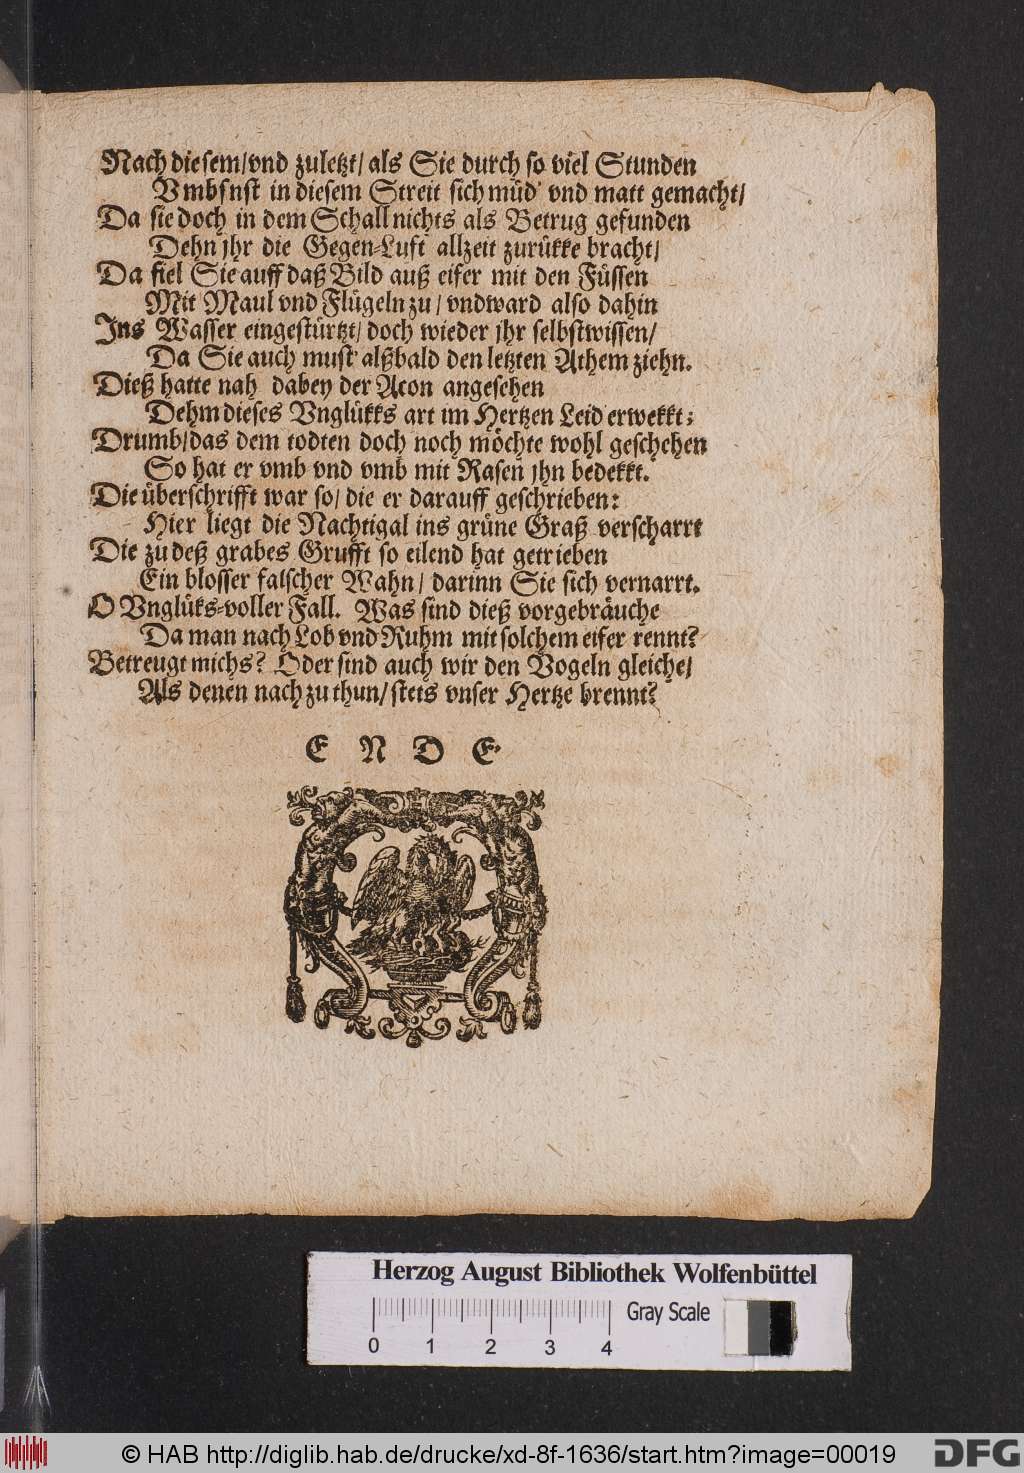 Nach diesem/vnd zuletzt/ als Sie durch so viel Stunden
Vmbsnst in diesem Streit sich müd' vnd matt gemacht/
Da sie doch in dem Schall nichts als Betrug gefunden
Dehn jhr die Gegen-Luft allzeit zurükke bracht/
Da fiel Sie auff daß Bild auß eifer mit den Füssen
Mit Maul vnd Flügeln zu/ vndward also dahin
Ins Wasser eingestürtzt/ doch wieder jhr selbstwissen/
Da Sie auch must' alßbald den letzten Athem ziehn.
Dieß hatte nah dabey der Acon angesehen
Dehm dieses Vnglükks art im Hertzen Leid erwekkt;
Drumb/das dem todten doch noch möchte wohl geschehen
So hat er vmb vnd vmb mit Rasen jhn bedekkt.
Die überschrifft war so/ die er darauff geschrieben:
Hier liegt die Nachtigal ins grüne Graß verscharrt
Die zu deß grabes Grufft so eilend hat getrieben
Ein blosser falscher Wahn/ darinn Sie sich vernarrt.
O Vnglüks-voller Fall. Was sind dieß vorgebräuche
Da man nach Lob vnd Ruhm mit solchem eifer rennt?
Betreugt michs? Oder sind auch wir den Vogeln gleiche/
Als denen nach zu thun/ stets vnser Hertze brennt?
ENDE.
Herzog August Bibliothek Wolfenbüttel
Gray Scale
0 1 2 3 4
© HAB http://diglib.hab.de/drucke/xd-8f-1636/start.htm?image=00019
DFG